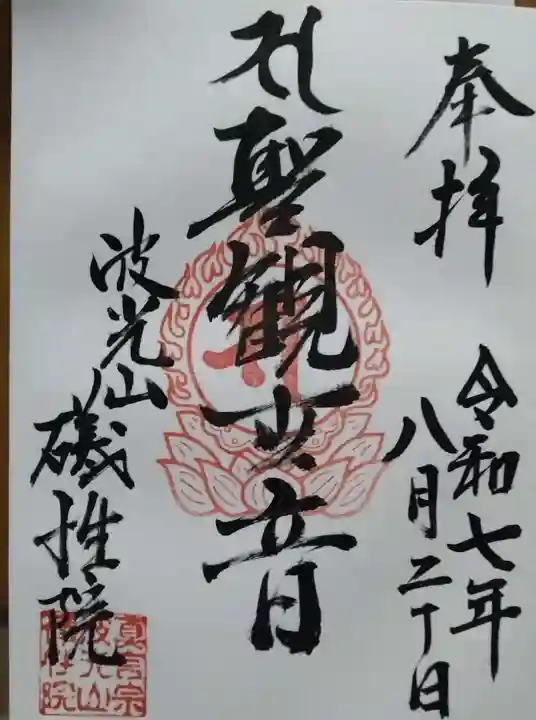 奉拝
令和七年
八月二十日
聖観世音
波光山
礒性院
真言宗
波光山